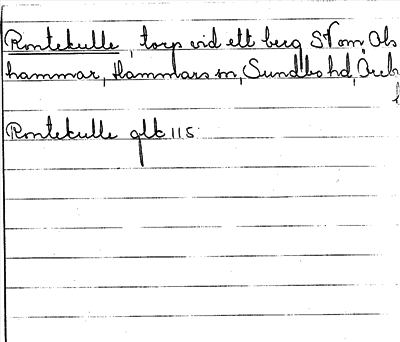 Rontekulle, torp vid ett berg SV om Ols
hammar, Hammars sn, Sundbo hd, Öreb
l
Rontekulle glk 115